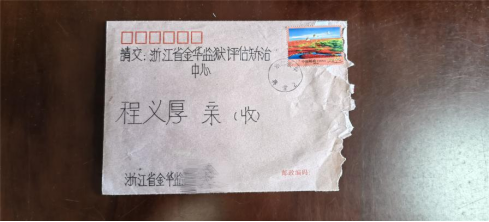 请交：浙江省金华监狱评估矫治
中心
程义厚 亲（收）
浙江省金华监
邮政编码：